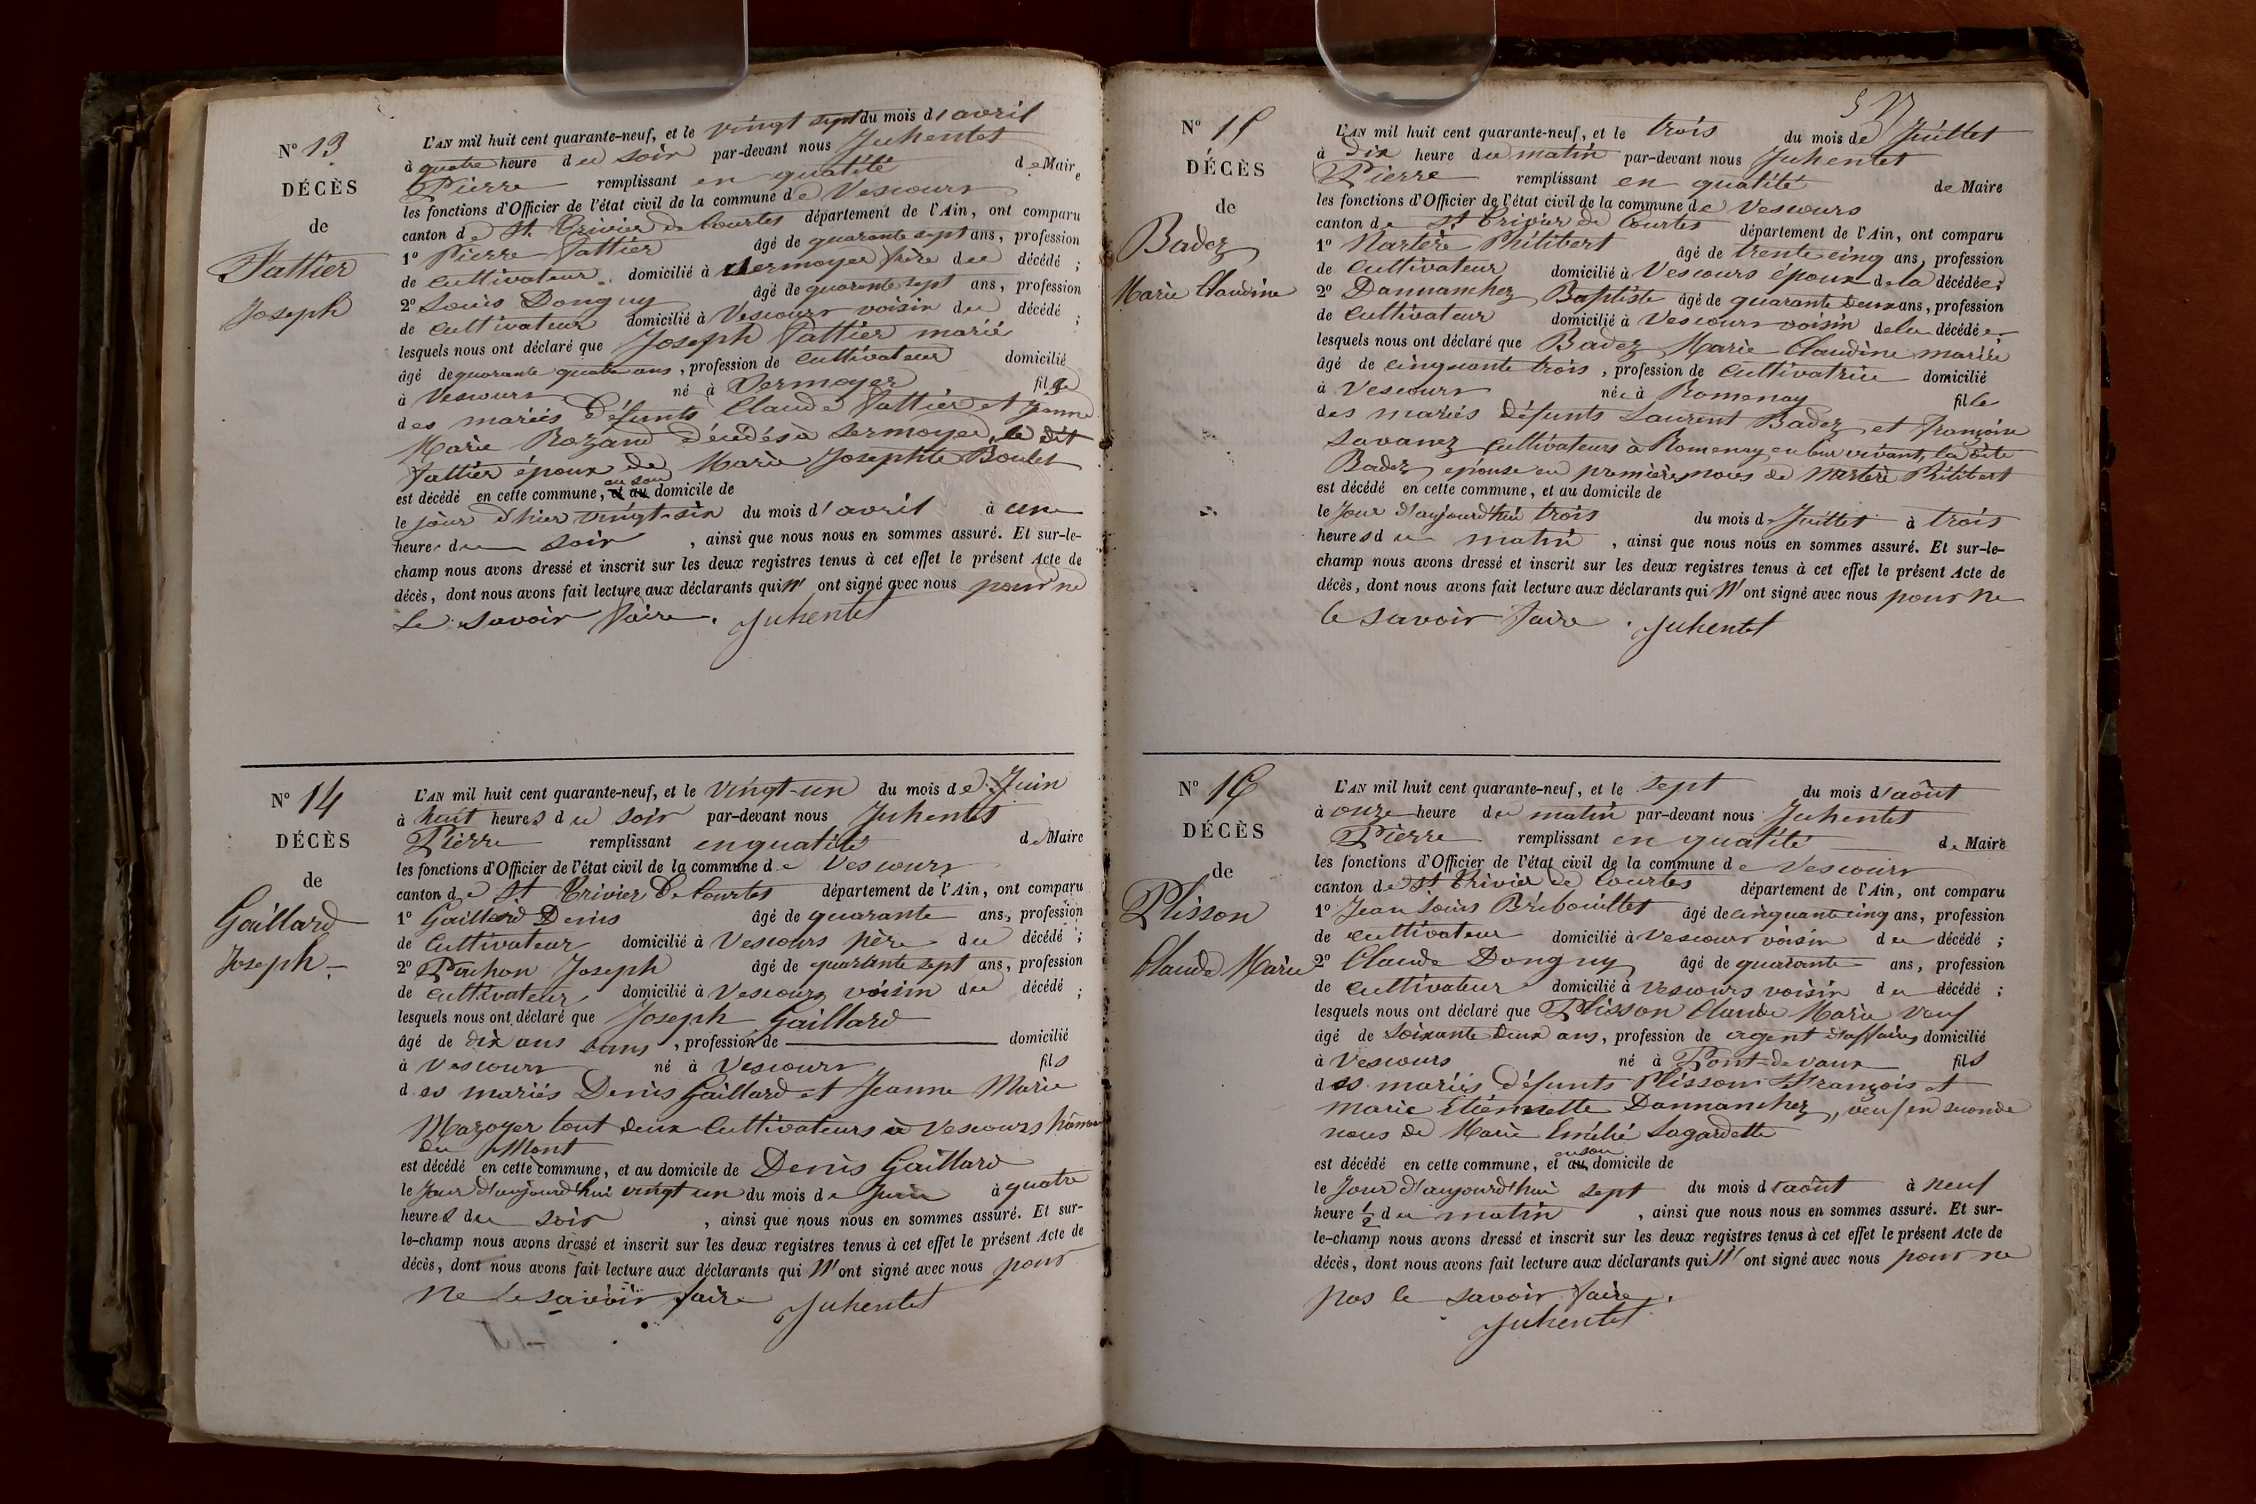 N° 13
DÉCÈS
de
Vattier
Joseph
L'AN mil huit cent quarante-neuf, et le vingt sept du mois d'avril
à quatre heure du soir par-devant nous Juhentet
Pierre remplissant en qualité de Maire
les fonctions d'Officier de l'état civil de la commune de Vescours
canton de St. Trivier de Courtes département de l'Ain, ont comparu
1° Pierre Vattier âgé de quarante sept ans, profession
de cultivateur domicilié à Sermoyer frère du décédé ;
2° Louis Donguy âgé de quarante sept ans, profession
de cultivateur domicilié à Vescours voisin du décédé ;
lesquels nous ont déclaré que Joseph Vattier marié
âgé de quarante quatre ans, profession de cultivateur domicilié
à Vescours né à Sermoyer fils
des mariés défunts Claude Vattier et Jeanne
Marie Rozand décédés à Sermoyer, le dit
Vattier époux de Marie Josephte Boulet
est décédé en cette commune, et au au son domicile de
le jour d'hier vingt-six du mois d'avril à une
heure du soir, ainsi que nous nous en sommes assuré. Et sur-le-
champ nous avons dressé et inscrit sur les deux registres tenus à cet effet le présent Acte de
décès, dont nous avons fait lecture aux déclarants qui n'ont signé avec nous pour ne
le savoir faire. Juhentet
N° 14
DÉCÈS
de
Gaillard
Joseph
L'AN mil huit cent quarante-neuf, et le vingt-un du mois de Juin
à huit heures du soir par-devant nous Juhentet
Pierre remplissant en qualité de Maire
les fonctions d'Officier de l'état civil de la commune de Vescours
canton de St. Trivier de Courtes département de l'Ain, ont comparu
1° Gaillard Denis âgé de quarante ans, profession
de cultivateur domicilié à Vescours père du décédé ;
2° Pauhon Joseph âgé de quarante sept ans, profession
de cultivateur domicilié à Vescours voisin du décédé ;
lesquels nous ont déclaré que Joseph Gaillard
âgé de dix ans sans, profession de domicilié
à Vescours né à Vescours fils
des mariés Denis Gaillard et Jeanne Marie
Mazoyer tout deux cultivateurs à Vescours hameau
du Mont
est décédé en cette commune, et au domicile de Denis Gaillard
le jour d'aujourd'hui vingt un du mois de Juin à quatre
heures du soir, ainsi que nous nous en sommes assuré. Et sur-
le-champ nous avons dressé et inscrit sur les deux registres tenus à cet effet le présent Acte de
décès, dont nous avons fait lecture aux déclarants qui n'ont signé avec nous pour
ne le savoir faire Juhentet
N° 15
DÉCÈS
de
Badez
Marie Claudine
L'AN mil huit cent quarante-neuf, et le trois du mois de Juillet
à dix heure du matin par-devant nous Juhentet
Pierre remplissant en qualité de Maire
les fonctions d'Officier de l'état civil de la commune de Vescours
canton de St. Trivier de Courtes département de l'Ain, ont comparu
1° Martère Philibert âgé de trente cinq ans, profession
de cultivateur domicilié à Vescours époux de la décédée ;
2° Dannanchez Baptiste âgé de quarante deux ans, profession
de cultivateur domicilié à Vescours voisin de la décédée
lesquels nous ont déclaré que Badez Marie Claudine mariée
âgé de cinquante trois, profession de cultivatrice domicilié
à Vescours née à Romenay fille
des mariés défunts Laurent Badez et Françoise
Savanez cultivateurs à Romenay en leur vivant, la dite
Badez épouse en premières noces de Martère Philibert
est décédé en cette commune, et au domicile de
le Jour d'aujourd'hui trois du mois de Juillet à trois
heures du matin, ainsi que nous nous en sommes assuré. Et sur-le-
champ nous avons dressé et inscrit sur les deux registres tenus à cet effet le présent Acte de
décès, dont nous avons fait lecture aux déclarants qui n'ont signé avec nous pour ne
le savoir faire. Juhentet
N° 16
DÉCÈS
de
Plisson
Claude Marie
L'AN mil huit cent quarante-neuf, et le sept du mois d'août
à onze heure du matin par-devant nous Juhentet
Pierre remplissant en qualité de Maire
les fonctions d'Officier de l'état civil de la commune de Vescours
canton de St. Trivier de Courtes département de l'Ain, ont comparu
1° Jean Louis Bribouillet âgé de cinquante cinq ans, profession
de cultivateur domicilié à Vescours voisin du décédé ;
2° Claude Donguy âgé de quarante ans, profession
de cultivateur domicilié à Vescours voisin du décédé ;
lesquels nous ont déclaré que Plisson Claude Marie veuf
âgé de soixante deux ans, profession de agent d'affaires domicilié
à Vescours né à Pont-de-vaux fils
des mariés défunts Plisson François et
Marie Etiennette Dannanchez, veuf en seconde
noces de Marie Emélié Lagardette
est décédé en cette commune, et au en son domicile de
le Jour d'aujourd'hui sept du mois d'août à neuf
heure ½ du matin, ainsi que nous nous en sommes assuré. Et sur-
le-champ nous avons dressé et inscrit sur les deux registres tenus à cet effet le présent Acte de
décès, dont nous avons fait lecture aux déclarants qui n'ont signé avec nous pour ne
pas le savoir faire.
Juhentet